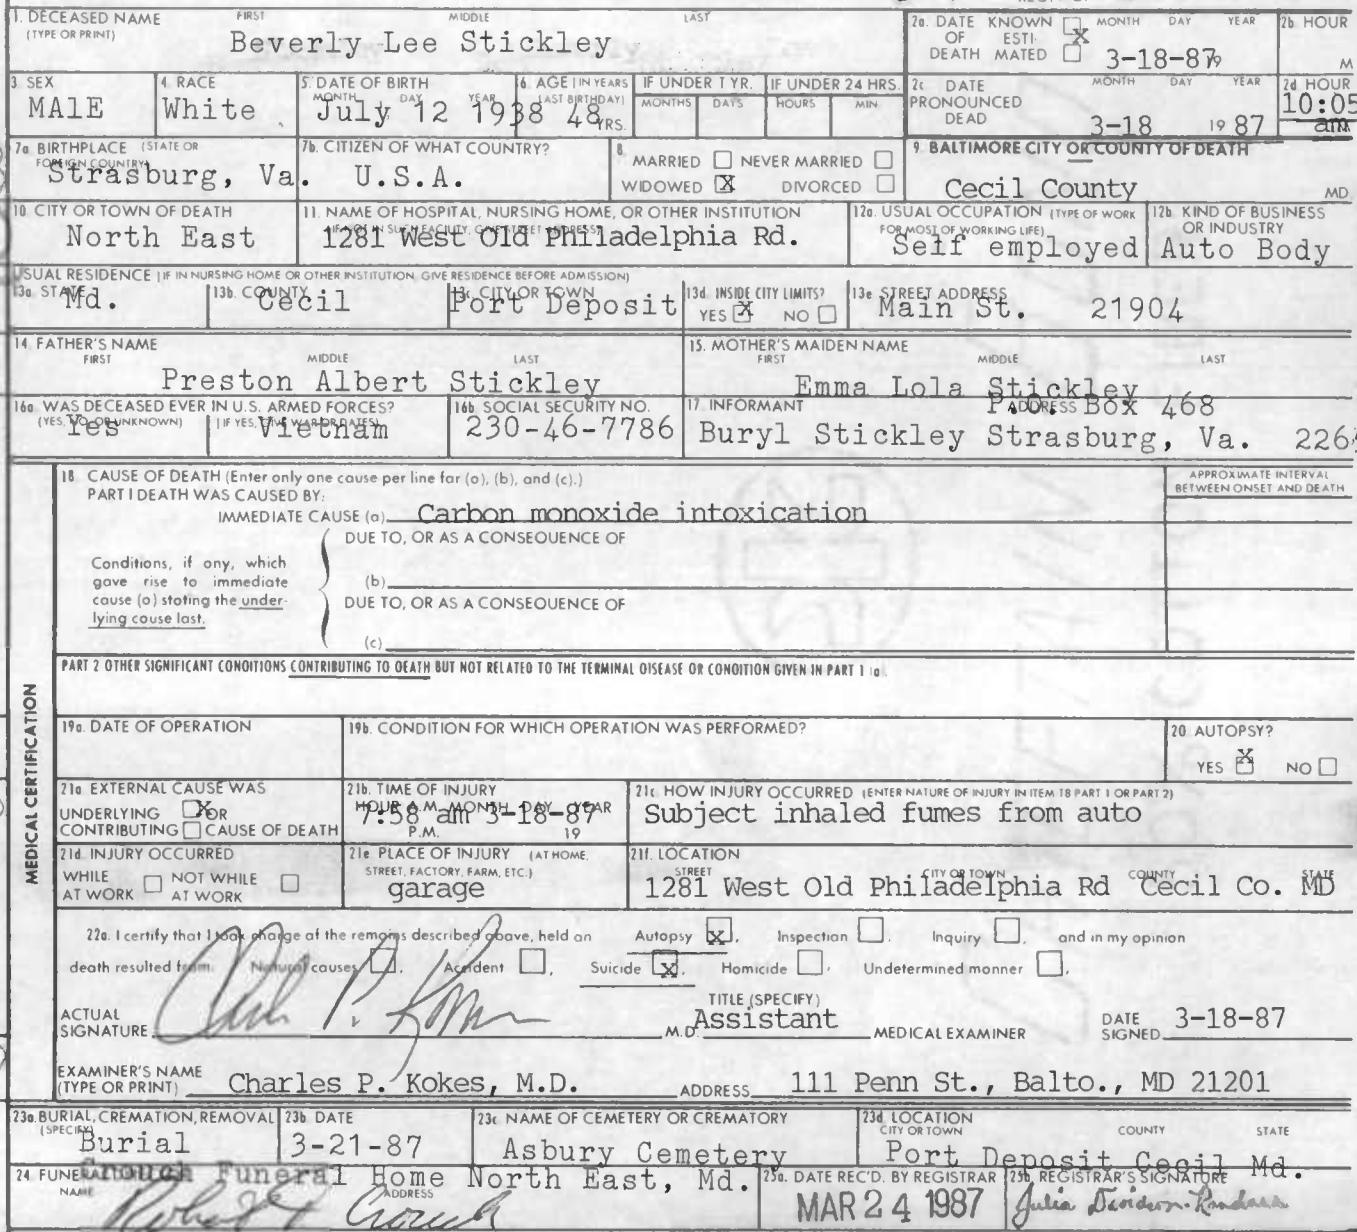 1. DECEASED NAME FIRST MIDDLE LAST
(TYPE OR PRINT)
Beverly Lee Stickley
2a. DATE KNOWN MONTH DAY YEAR
OF ESTI- X
DEATH MATED 3-18-87 19
2b HOUR
M
3 SEX
MAlE
4. RACE
White
5. DATE OF BIRTH
MONTH DAY YEAR
July 12 1938
6 AGE (IN YEARS
LAST BIRTHDAY)
48 YRS.
IF UNDER 1 YR.
MONTHS DAYS
IF UNDER 24 HRS.
HOURS MIN
2c DATE MONTH DAY YEAR
PRONOUNCED
DEAD 3-18 19 87
2d HOUR
10:05
am
7a. BIRTHPLACE (STATE OR
FOREIGN COUNTRY)
Strasburg, Va.
7b. CITIZEN OF WHAT COUNTRY?
U.S.A.
8.
MARRIED NEVER MARRIED
WIDOWED X DIVORCED
9. BALTIMORE CITY OR COUNTY OF DEATH
Cecil County MD.
10. CITY OR TOWN OF DEATH
North East
11. NAME OF HOSPITAL, NURSING HOME, OR OTHER INSTITUTION
(IF NOT IN SUCH FACILITY, GIVE STREET ADDRESS)
1281 West Old Philadelphia Rd.
12a. USUAL OCCUPATION (TYPE OF WORK
FOR MOST OF WORKING LIFE)
Self employed
12b. KIND OF BUSINESS
OR INDUSTRY
Auto Body
USUAL RESIDENCE (IF IN NURSING HOME OR OTHER INSTITUTION GIVE RESIDENCE BEFORE ADMISSION)
13a. STATE
Md.
13b. COUNTY
Cecil
13c. CITY OR TOWN
Port Deposit
13d. INSIDE CITY LIMITS?
YES X NO
13e STREET ADDRESS
Main St. 21904
14. FATHER'S NAME
FIRST MIDDLE LAST
Preston Albert Stickley
15. MOTHER'S MAIDEN NAME
FIRST MIDDLE LAST
Emma Lola Stickley
16a WAS DECEASED EVER IN U.S. ARMED FORCES?
(YES, NO, OR UNKNOWN) (IF YES, GIVE WAR OR DATES)
Yes Vietnam
16b SOCIAL SECURITY NO.
230-46-7786
17. INFORMANT ADDRESS
Box 468
Buryl Stickley Strasburg, Va.
MEDICAL CERTIFICATION
18 CAUSE OF DEATH (Enter only one cause per line for (a), (b), and (c).)
PART I DEATH WAS CAUSED BY:
APPROXIMATE INTERVAL
BETWEEN ONSET AND DEATH
IMMEDIATE CAUSE (a) Carbon monoxide intoxication
DUE TO, OR AS A CONSEQUENCE OF
Conditions, if any, which
gave rise to immediate
cause (a) stating the under-
lying cause last.
(b)
DUE TO, OR AS A CONSEQUENCE OF
(c)
PART 2 OTHER SIGNIFICANT CONDITIONS CONTRIBUTING TO DEATH BUT NOT RELATED TO THE TERMINAL DISEASE OR CONDITION GIVEN IN PART 1 (a).
19a. DATE OF OPERATION
19b. CONDITION FOR WHICH OPERATION WAS PERFORMED?
20 AUTOPSY?
YES X NO
21a EXTERNAL CAUSE WAS
UNDERLYING X OR
CONTRIBUTING CAUSE OF DEATH
21b. TIME OF INJURY
HOUR A.M. MONTH DAY YEAR
7:58 am 3-18-87
P.M. 19
21c HOW INJURY OCCURRED (ENTER NATURE OF INJURY IN ITEM 18 PART 1 OR PART 2)
Subject inhaled fumes from auto
21d INJURY OCCURRED
WHILE NOT WHILE
AT WORK AT WORK
21e PLACE OF INJURY (AT HOME,
STREET, FACTORY, FARM, ETC.)
garage
21f. LOCATION
STREET CITY OR TOWN COUNTY STATE
1281 West Old Philadelphia Rd Cecil Co. MD
22a. I certify that I took charge of the remains described above, held an Autopsy X, Inspection , Inquiry , and in my opinion
death resulted from Natural causes , Accident , Suicide X, Homicide , Undetermined manner ,
ACTUAL
SIGNATURE Charles P. Kokes M.D.
TITLE (SPECIFY)
Assistant MEDICAL EXAMINER
DATE
SIGNED 3-18-87
EXAMINER'S NAME
(TYPE OR PRINT) Charles P. Kokes, M.D. ADDRESS 111 Penn St., Balto., MD 21201
23a. BURIAL, CREMATION, REMOVAL
(SPECIFY)
Burial
23b DATE
3-21-87
23c NAME OF CEMETERY OR CREMATORY
Asbury Cemetery
23d LOCATION
CITY OR TOWN COUNTY STATE
Port Deposit Cecil Md.
24 FUNERAL
NAME ADDRESS
Crouch Funeral Home North East, Md.
Robert Crouch
25a. DATE REC'D. BY REGISTRAR
MAR 24 1987
25b. REGISTRAR'S SIGNATURE
Julia Davidson-Randall